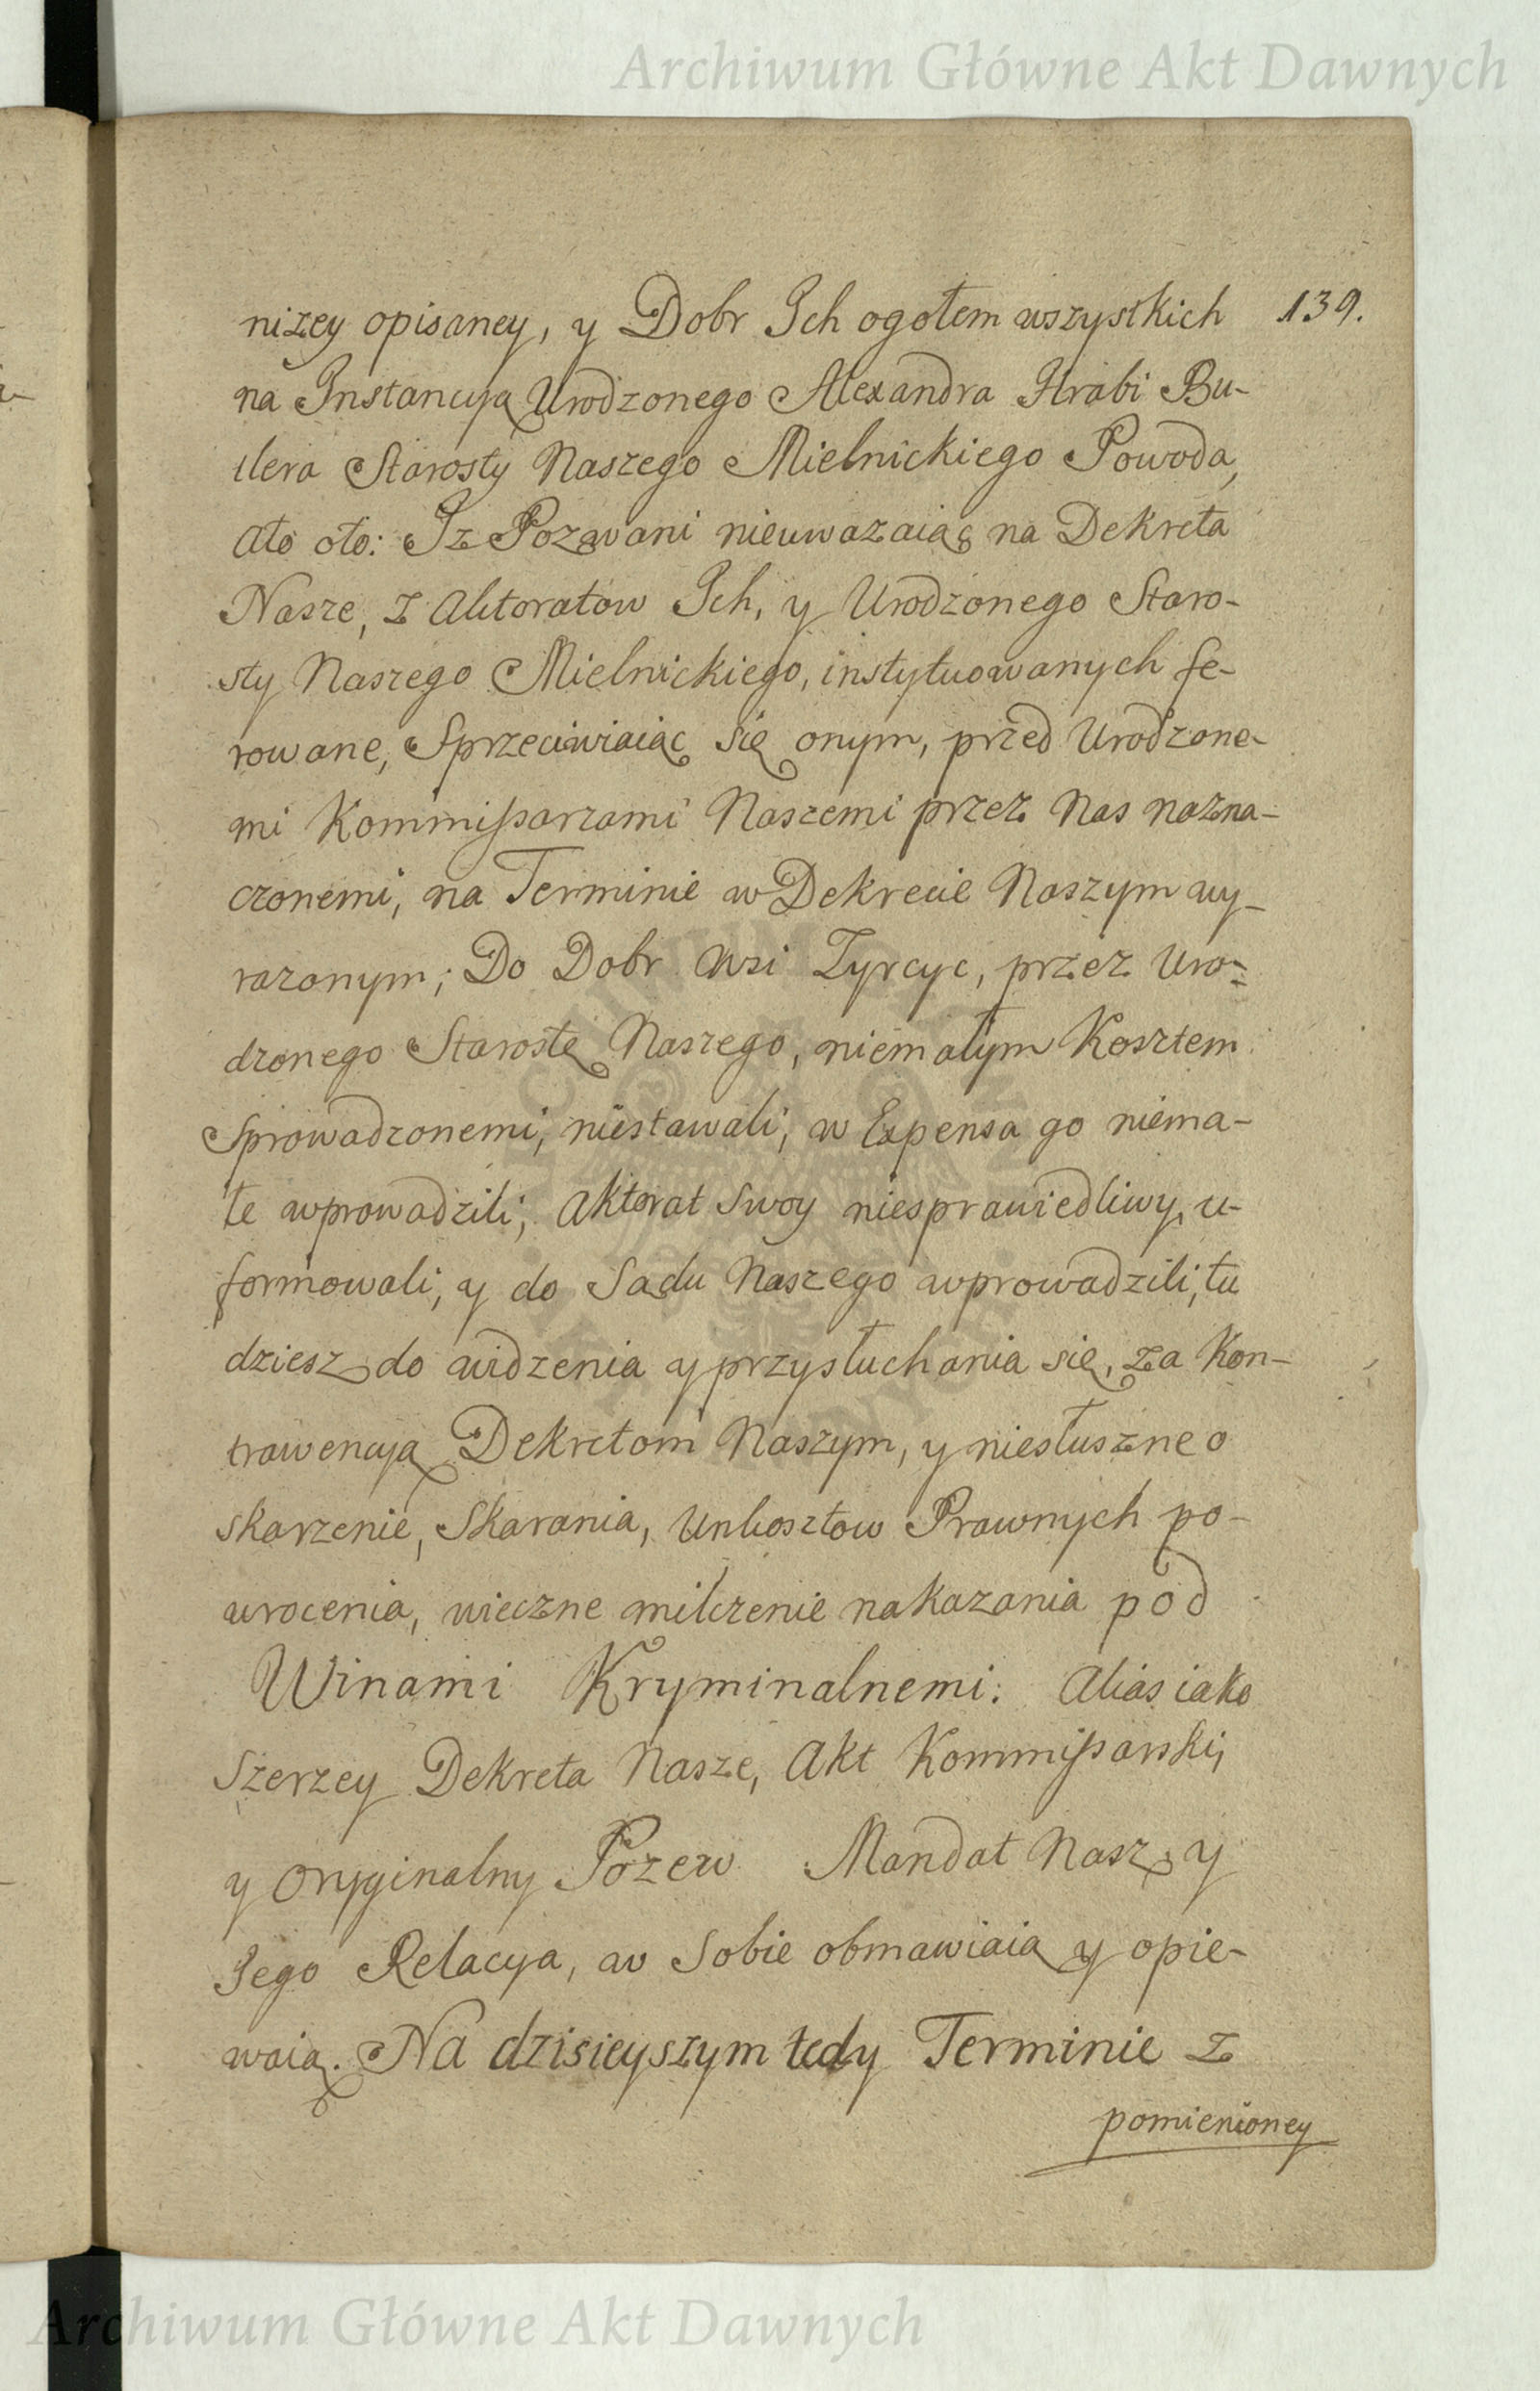 Archiwum Główne Akt Dawnych
139.
niżey opisaney, y Dobr Ich ogołem wszystkich
na Instancyą Urodzonego Alexandra Hrabi Bu-
tlera Starosty Naszego Mielnickiego Powoda,
Ato oto: Iz Pozwani nieuwazaiąc na Dekreta
Nasze, z Aktoratow Ich, y Urodzonego Staro-
sty Naszego Mielnickiego, instytuowanych fe-
rowane, Sprzeciwiaiąc się onym, przed Urodzone-
mi Kommissarzami Naszemi przez Nas nazna-
czonemi, na Terminie w Dekrecie Naszym wy-
razonym; Do Dobr Wsi Tyrcyc, przez Uro-
dzonego Starostę Naszego, niemałym Kosztem
Sprowadzonemi, niestawali, w Expensa go niema-
łe wprowadzili, Aktorat Swoy niesprawiedliwy, u-
formowali, y do Sądu Naszego wprowadzili, tu
dziesz do widzenia y przysłuchania się, za Kon-
trawencyą Dekretom Naszym, y niesłuszne o
skarzenie, Skarania, Unkosztow Prawnych po-
wrocenia, wieczne milczenie nakazania pod
Winami Kryminalnemi: Alias iako
Szerzey Dekreta Nasze, Akt Kommissarski,
y Oryginalny Pozew Mandat Nasz, y
Jego Relacya, w Sobie obmawiaią y opie-
waią. Na dzisieyszym tedy Terminie z
pomienioney
Archiwum Główne Akt Dawnych